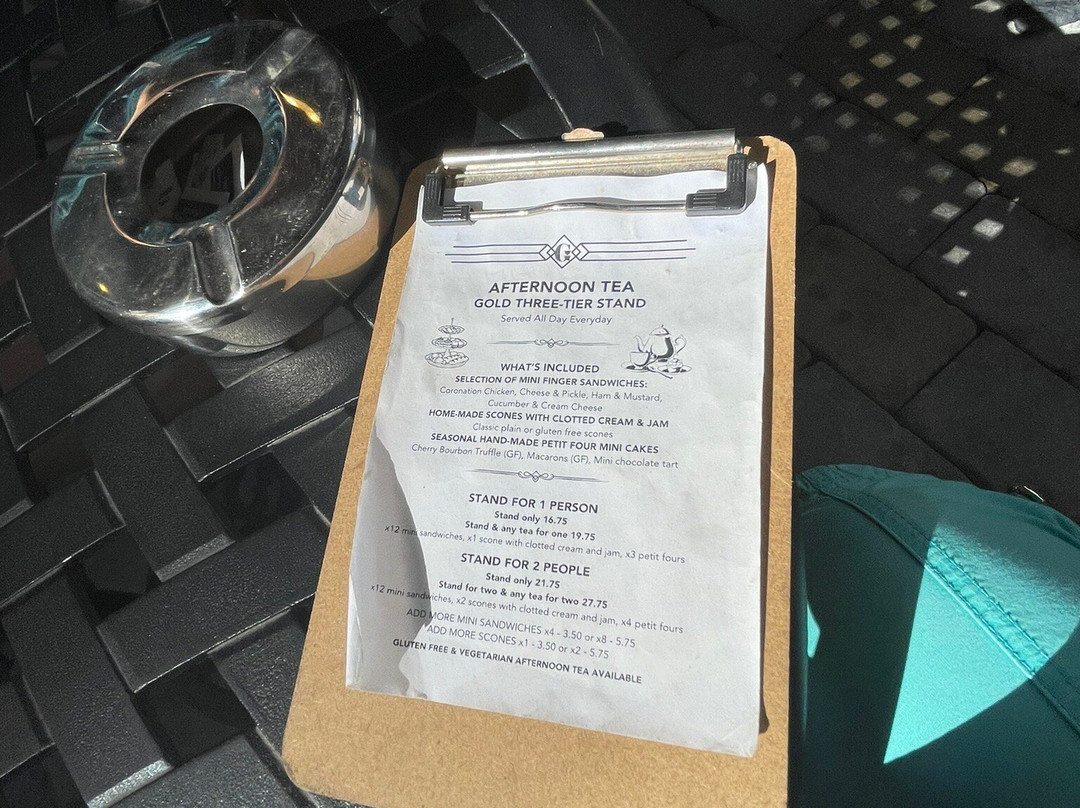 G
AFTERNOON TEA
GOLD THREE-TIER STAND
Served All Day Everyday
WHAT'S INCLUDED
SELECTION OF MINI FINGER SANDWICHES:
Coronation Chicken, Cheese & Pickle, Ham & Mustard,
Cucumber & Cream Cheese
HOME-MADE SCONES WITH CLOTTED CREAM & JAM
Classic plain or gluten free scones
SEASONAL HAND-MADE PETIT FOUR MINI CAKES
Cherry Bourbon Truffle (GF), Macarons (GF), Mini chocolate tart
STAND FOR 1 PERSON
Stand only 16.75
Stand & any tea for one 19.75
x12 mini sandwiches, x1 scone with clotted cream and jam, x3 petit fours
STAND FOR 2 PEOPLE
Stand only 21.75
Stand for two & any tea for two 27.75
x12 mini sandwiches, x2 scones with clotted cream and jam, x4 petit fours
ADD MORE MINI SANDWICHES x4 - 3.50 or x8 - 5.75
ADD MORE SCONES x1 - 3.50 or x2 - 5.75
GLUTEN FREE & VEGETARIAN AFTERNOON TEA AVAILABLE